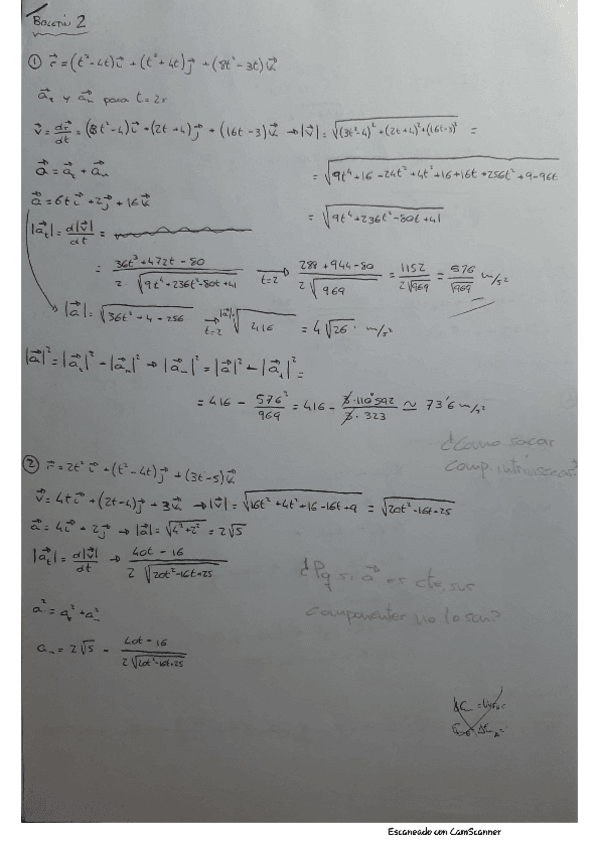 Boletín 2
① r⃗ = (t³-4t)i⃗ + (t²+4t)j⃗ + (8t²-3t)k⃗
a⃗ₜ y a⃗ₙ para t=2s
v⃗ = dr⃗/dt = (3t²-4)i⃗ + (2t+4)j⃗ + (16t-3)k⃗ → |v⃗| = √((3t²-4)² + (2t+4)² + (16t-3)²) =
a⃗ = a⃗ₜ + a⃗ₙ
= √(9t⁴+16-24t²+4t²+16+16t+256t²+9-96t)
a⃗ = 6t i⃗ + 2j⃗ + 16k⃗
= √(9t⁴+236t²-80t+41)
|a⃗ₜ| = d|v⃗|/dt =
= (36t³+472t-80)/(2·√(9t⁴+236t²-80t+41)) → t=2 (288+944-80)/(2√969) = 1152/(2√969) = 576/√969 m/s²
|a⃗| = √(36t²-4-256) → t=2 |a⃗| √416 = 4√26 m/s²
|a⃗|² = |a⃗ₜ|² - |a⃗ₙ|² → |a⃗ₙ|² = |a⃗|² - |a⃗ₜ|² =
= 416 - 576²/969 = 416 - 3·110592/3·323 ≃ 73'6 m/s²
¿Como sacar
comp. intrínsecas?
② r⃗ = 2t² i⃗ + (t²-4t)j⃗ + (3t-5)k⃗
v⃗ = 4t i⃗ + (2t-4)j⃗ + 3k⃗ → |v⃗| = √(16t²+4t²+16-16t+9) = √(20t²-16t+25)
a⃗ = 4i⃗ + 2j⃗ → |a⃗| = √(4²+2²) = 2√5
|a⃗ₜ| = d|v⃗|/dt → (40t-16)/(2√(20t²-16t+25))
¿Pq si a⃗ es cte, sus
componentes no lo son?
a² = aₜ² + aₙ²
aₙ = 2√5 - (40t-16)/(2√(20t²-16t+25))
Escaneado con CamScanner